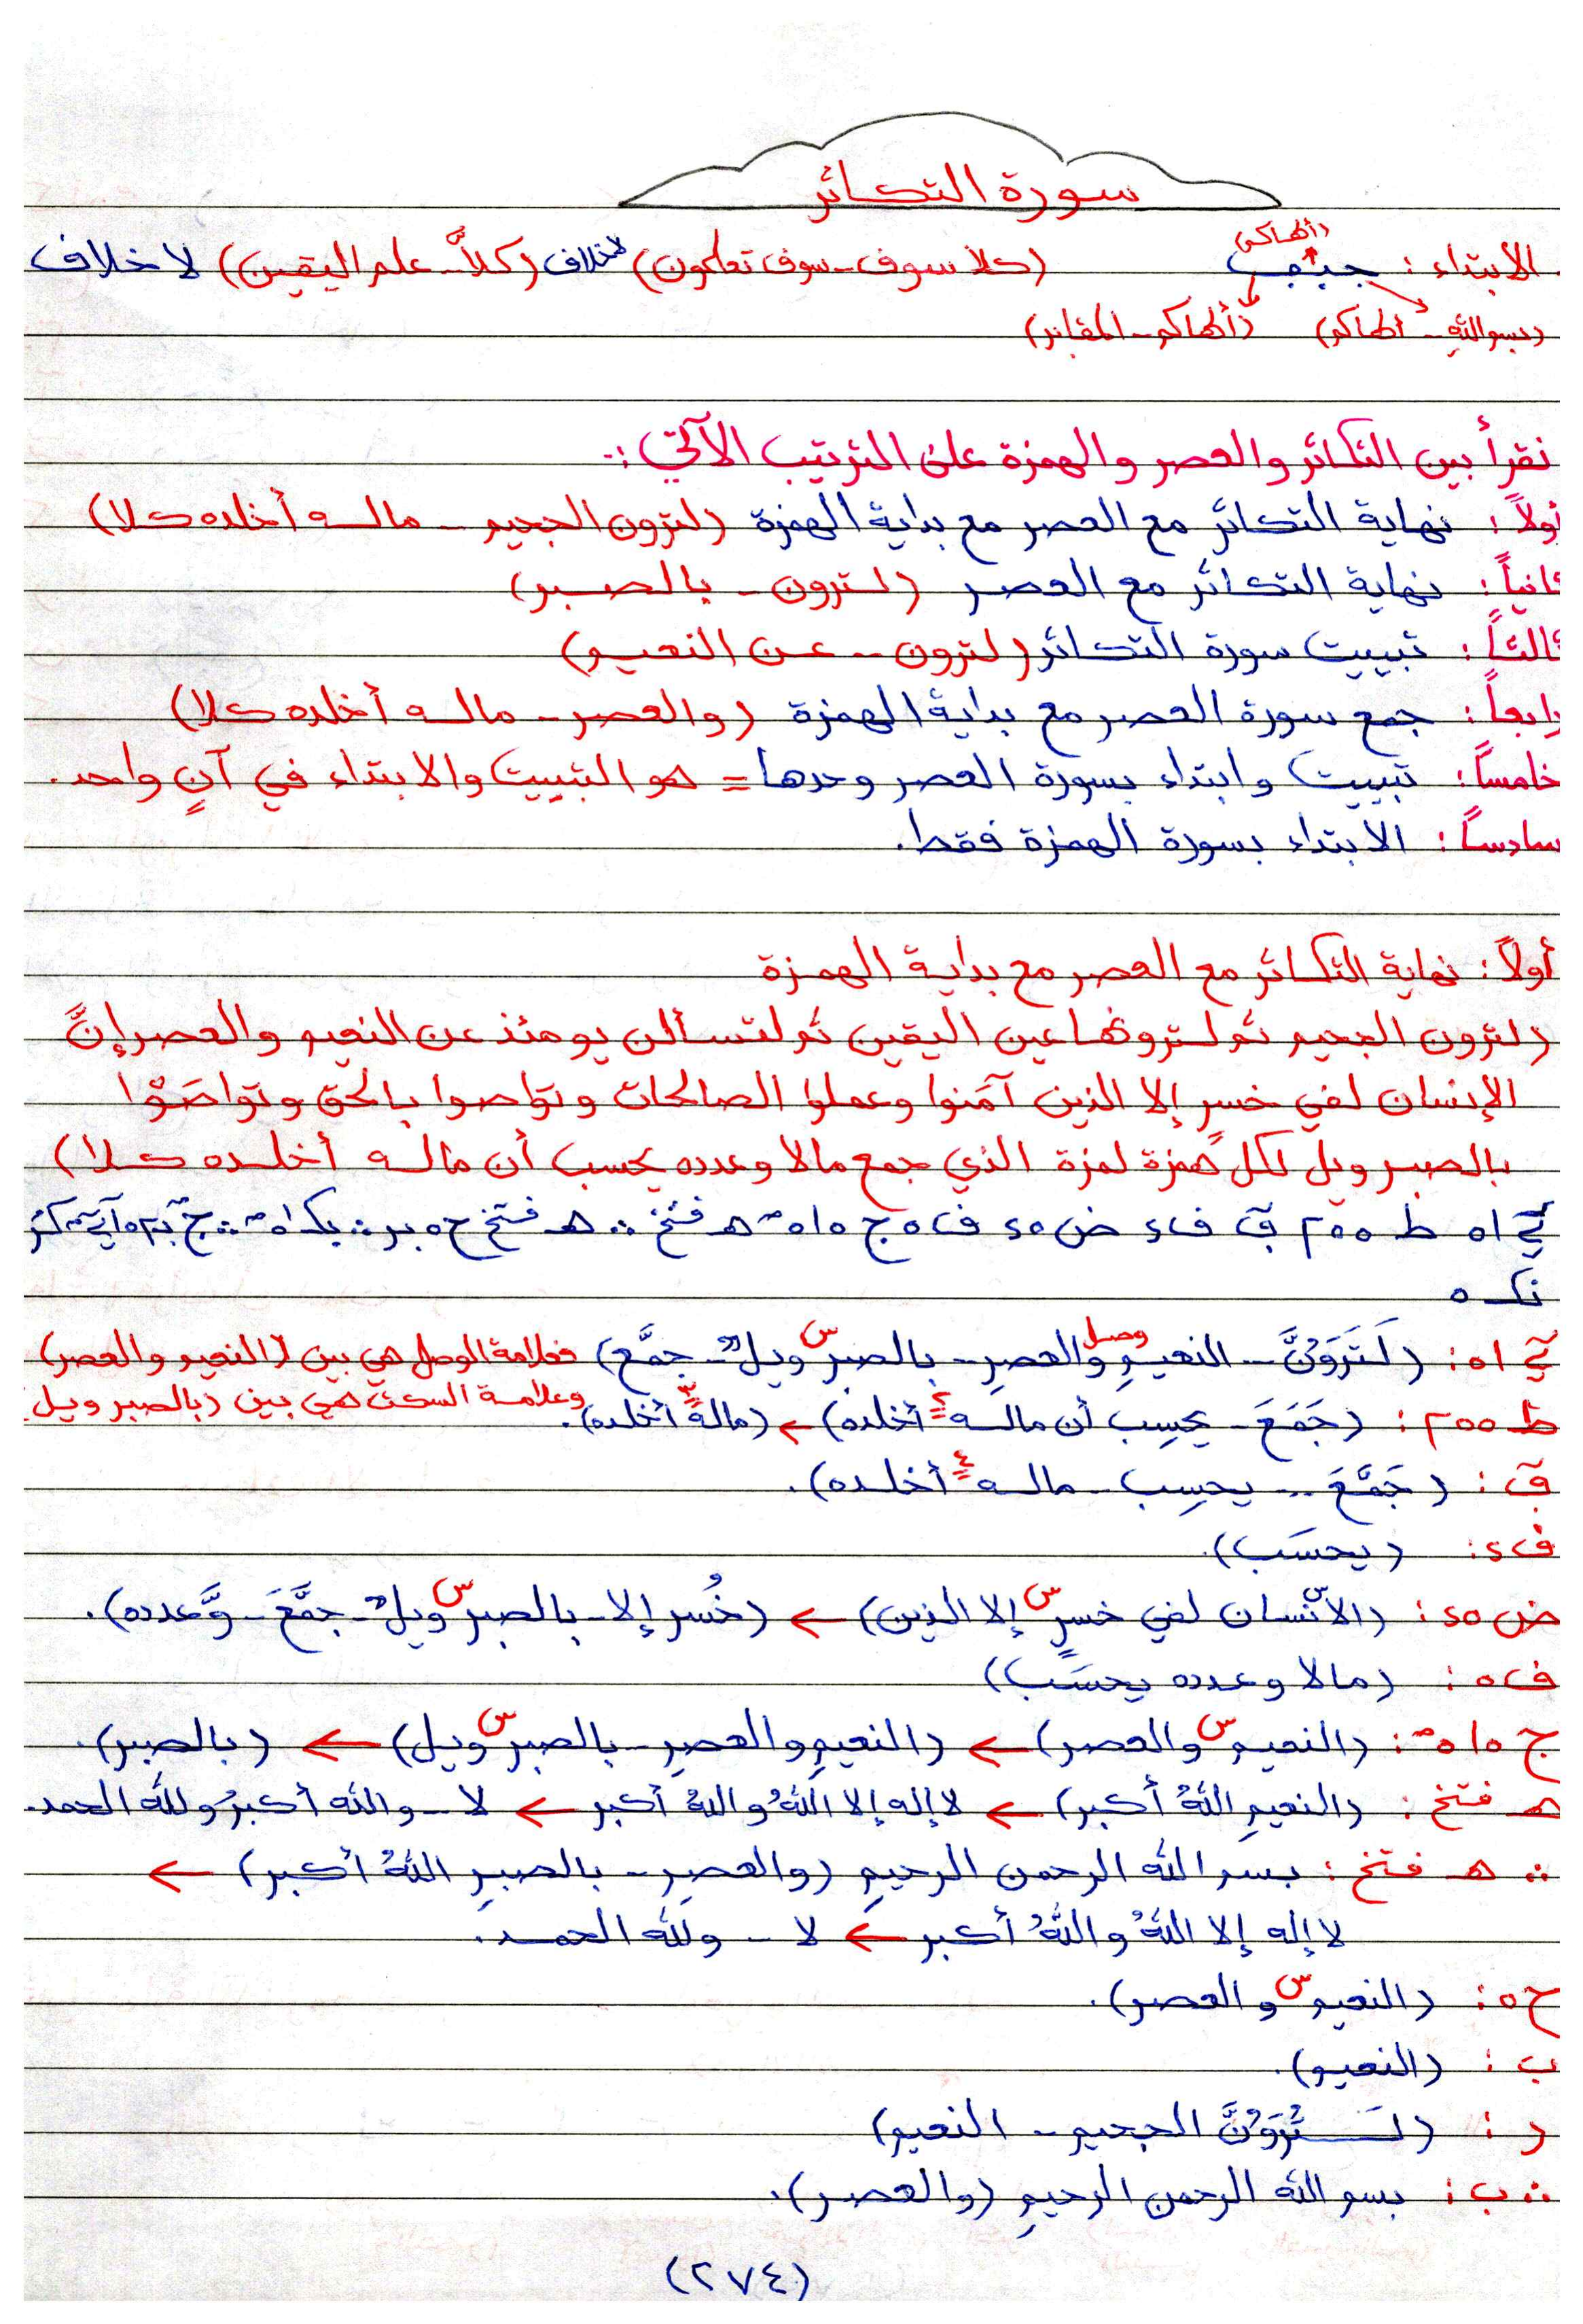 سورة التكاثر
(ألهاكم)
الابتداء : (كلا سوف - سوف تعلمون) لا خلاف (كلاَّ - علم اليقين) لا خلاف
(بسم اللّه - ألهاكم) (ألهاكم - المقابر)
نقرأ بين التكاثر والعصر والهمزة على الترتيب الآتي :-
أولاً : نهاية التكاثر مع العصر مع بداية الهمزة (لترون الجحيم - ماله أخلده كلا)
ثانياً : نهاية التكاثر مع العصر (لترون - بالصبر)
ثالثاً : تبييت سورة التكاثر (لترون - عن النعيم)
رابعاً : جمع سورة العصر مع بداية الهمزة (والعصر - ماله أخلده كلا)
خامساً : تبييت وابتداء بسورة العصر وحدها = هو التبييت والابتداء في آنٍ واحد .
سادساً : الابتداء بسورة الهمزة فقط .
أولاً : نهاية التكاثر مع العصر مع بداية الهمزة
(لترون الجحيم ثم لترونها عين اليقين ثم لتسألن يومئذ عن النعيم والعصر إنَّ
الإنسان لفي خسر إلا الذين آمنوا وعملوا الصالحات وتواصوا بالحق وتواصَوْا
بالصبر ويل لكل همزة لمزة الذي جمع مالا وعدده يحسب أن ماله أخلده كلا)
(لَتَرَوُنَّ - النعيمِ وصل والعصرِ - بالصبر س ويلٌ - جمَّع) فعلامة الوصل هي بين (النعيم والعصر)
وعلامة السكت هي بين (بالصبر ويل
ط ٢٥٥ : (جَمَعَ - يحسِب أن ماله ٢ أخلده) ← (ماله ٣ أخلده) .
ق : (جَمَّعَ - يحسِب - ماله ٤ أخلده) .
ف ٤ : (يحسَب) .
ض ٤٥ : (الانسان لفي خسرٍ س إلا الذين) ← (خُسر إلا - بالصبر س ويلٌ - جمَّعَ - وَّعدده) .
ف ٥ : (مالا وعدده يحسَب)
(النعيم س والعصر) ← (النعيمِ والعصرِ - بالصبر س ويل) ← (بالصبر) .
هـ فتخ : (النعيمِ اللّهُ أكبر) ← لا إله إلا اللّهُ واللّهُ أكبر ← لا - واللّه أكبرُ وللّه الحمد .
∴ هـ فتخ : بسم اللّه الرحمن الرحيمِ (والعصرِ - بالصبرِ اللّهُ أكبر) ←
لا إله إلا اللّهُ واللّهُ أكبر ← لا - وللّه الحمد .
ح ٥ : (النعيم س والعصر) .
ب : (النعيم) .
د : (لَتَرَوُنَّ الجحيم - النعيم)
∴ ب : بسم اللّه الرحمن الرحيمِ (والعصر) .
(٢٧٤)